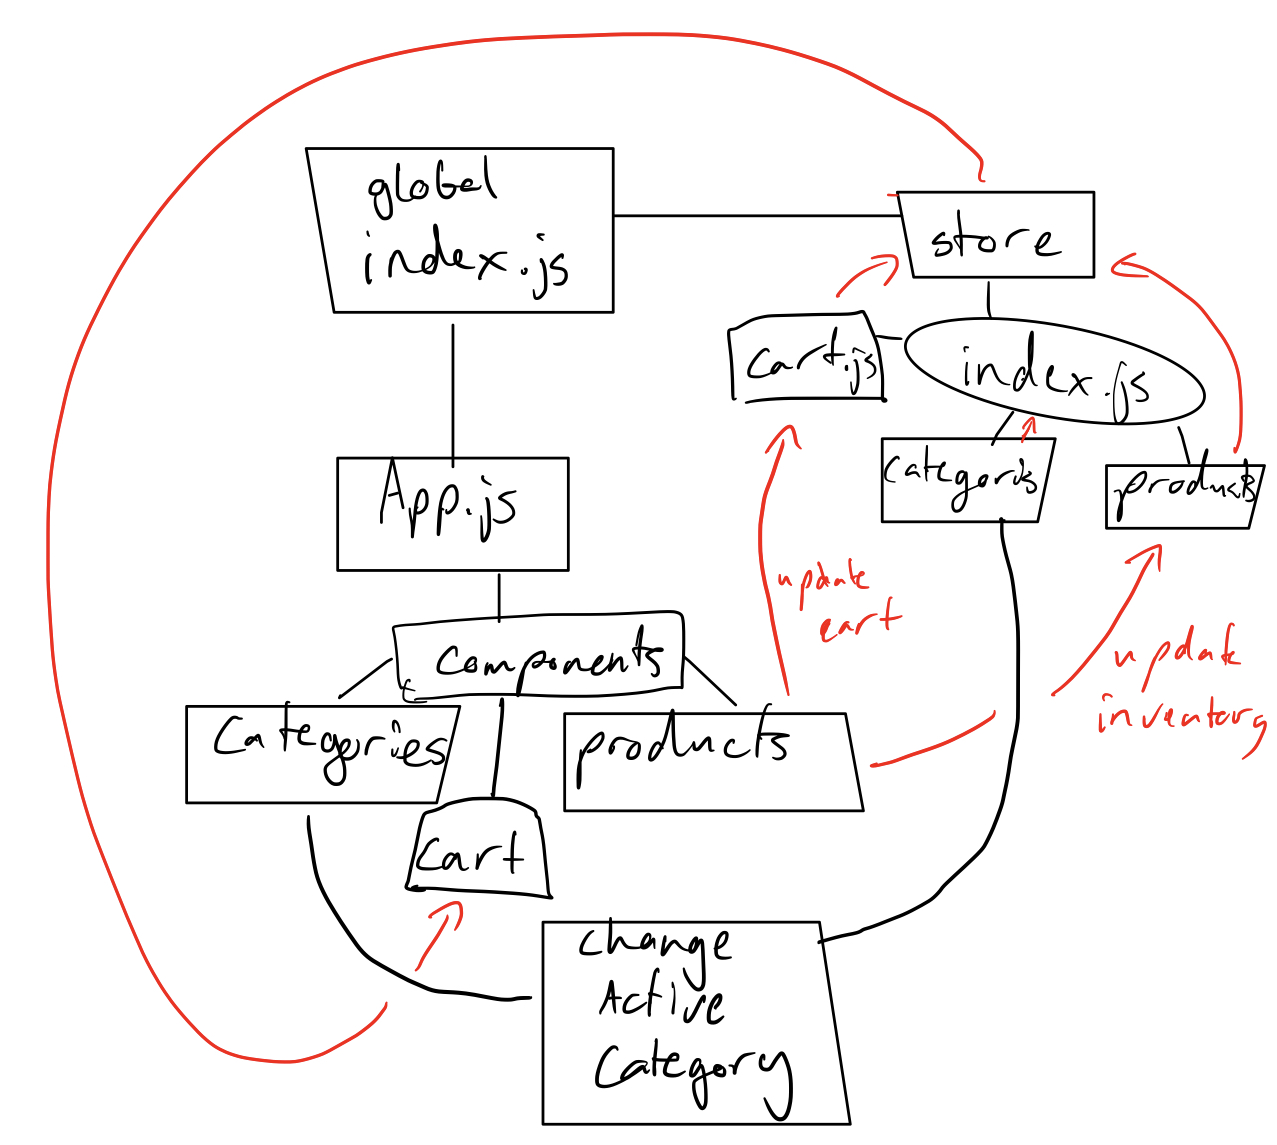 global
index.js
store
cart.js
index.js
categoris
products
App.js
update
cart
components
update
inventory
Categories
products
Cart
change
Active
Category